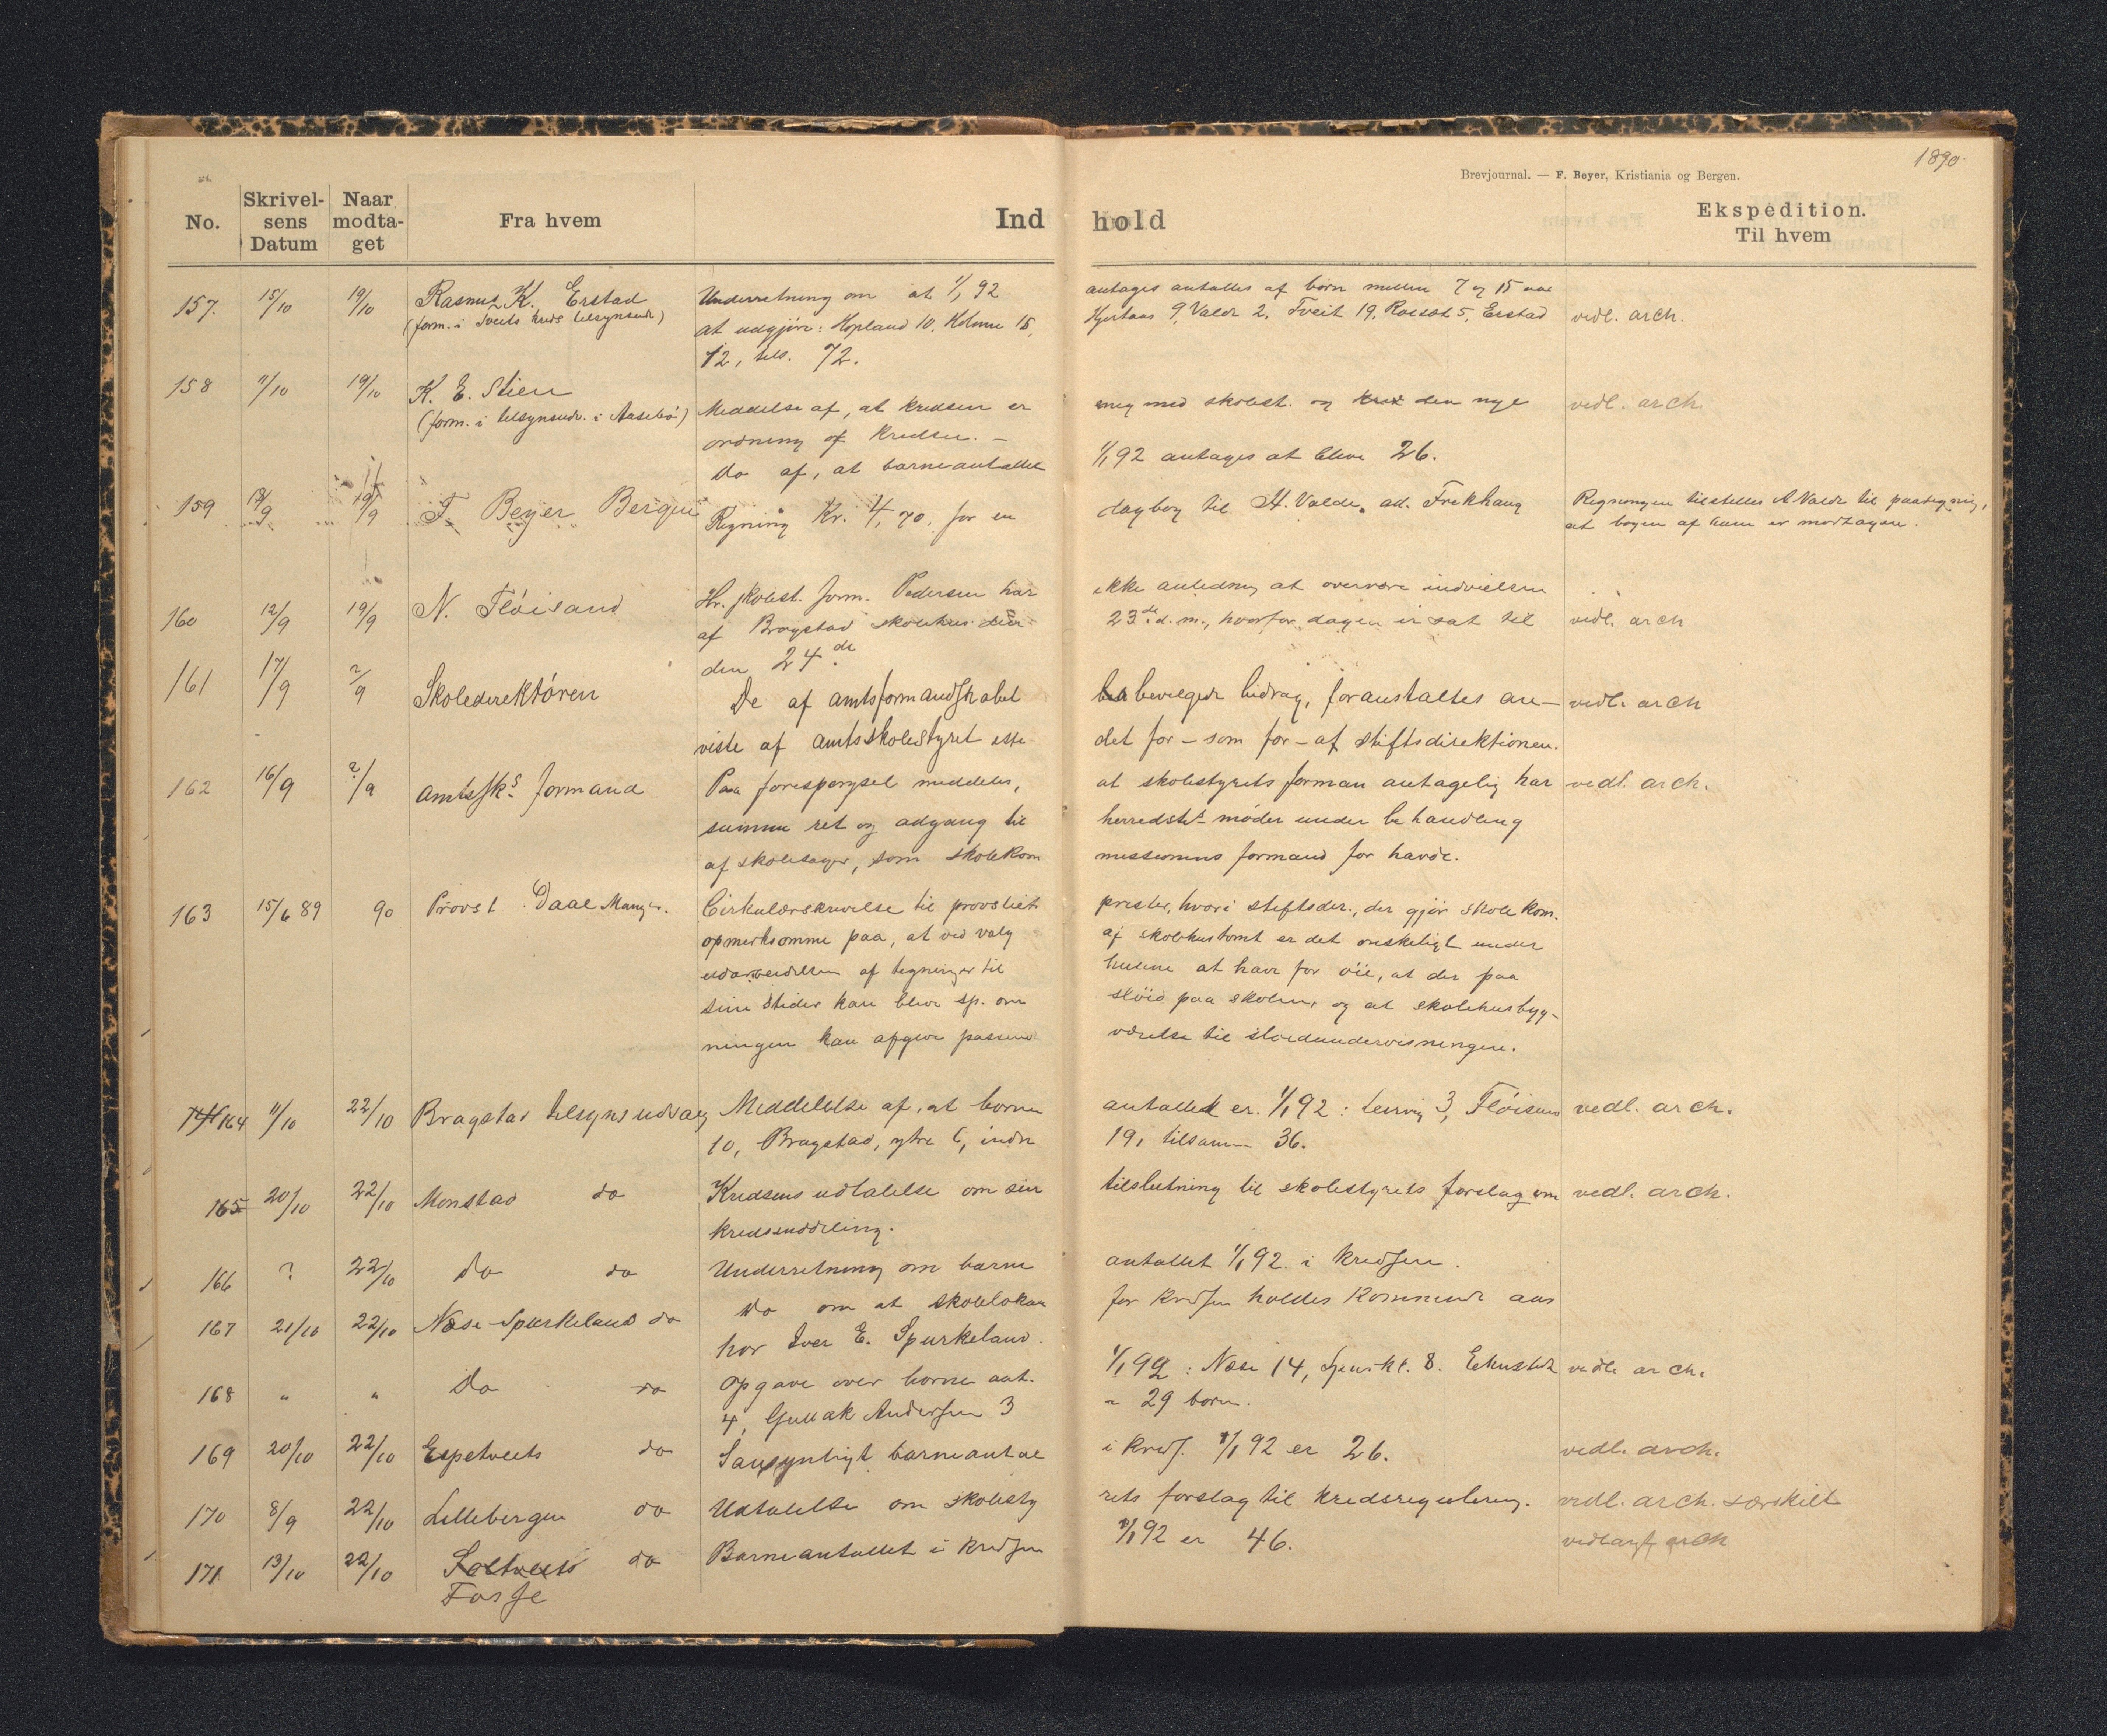 1890
Brevjournal. — F. Beyer, Kristiania og Bergen.
No. Skrivelsens Datum Naar modtaget Fra hvem Ind hold Ekspedition. Til hvem
157. 15/10 19/10 Rasmus K. Erstad Underretning om at 1/1 92 antages antallet af børn mellem 7 og 15 aar
(form. i Tveits kreds tilsynsudv.) at udgjøre: Hopland 10, Kolme 15, Hjertaas 9, Valde 2, Tveit 19, 5, Erstad vedl. arch.
12, tils. 72.
158 11/10 19/10 K. E. Stien
(form. i tilsynsudv. i Aasebø) Meddelse af, at kredsen er enig med skolest. og den nye vedl. arch.
ordning af kredsen. —
do af, at barneantallet 1/1 92 antages at blive 26.
159 18/9 19/9 F. Beyer Bergen Regning Kr. 4,70, for en dagbog til A. Valde, ad. Frekhaug Regningen tilstilles A Valde til paategning,
at bogen af ham er modtagen.
160 12/9 19/9 N. Fløisand Hr. skolest. form. Pedersen har ikke anledning at overvære indvielsen
af Bragstad skolehus den 23de d. m., hvorfor dagen er sat til vedl. arch
den 24de.
161 17/9 ?/9 Skoledirektøren De af amtsformandskabet bevilgede bidrag, foranstaltes an- vedl. arch
viste af amtsskolestyret iste- det for – som før – af stiftsdirektionen.
162 16/9 ?/9 Amtssks formand Paa forespørgsel meddeles, at skolestyrets forman antagelig har vedl. arch.
samme ret og adgang til herredsts møder under behandling
af skolesager, som skolekom missionens formand før havde.
163 15/6 89 90 Provst Daae Manger. Cirkulærskrivelse til provstiet prester, hvori stiftsdir., der gjør skolekom.
opmerksomme paa, at ved valg af skolehustomt er det ønskeligt under
udarbeidelsen af tegninger til husene at have for øie, at der paa
sine steder kan blive sp. om sløid paa skolen, og at skolehusbyg-
ningen kan afgive passend værelse til sløidundervisningen.
164 11/10 22/10 Bragstad tilsynsudvalg Meddelelse af, at børne antallet er. 1/1 92: Leirvig 3, Fløisand vedl. arch.
10, Bragstad, ytre 6, indre 19, tilsamm 36.
165 20/10 22/10 Monstad do Kredsens udtalelse om sin tilslutning til skolestyrets forslag om vedl. arch.
kredsinddeling.
166 ? 22/10 do do Underretning om barne antallet 1/1 92. i kredsen.
167 21/10 22/10 Næse-Spurkeland do do om at skolelokan for kredsen holdes kommende aar
hor Iver E. Spurkeland.
168 " " do do Opgave over børne ant. 1/1 92: Næse 14, Spurkl. 8. vedl. arch.
4, Gullak Andersen 3 = 29 børn.
169 20/10 22/10 Espetveits do Sansynligt barneantal i kreds. 1/1 92 er 26. vedl. arch.
170 8/9 22/10 Lillebergen do Udtalelse om skolesty rets forslag til kredsregulering. vedl. arch. særskilt
171 13/10 22/10 do Barneantallet i kredsen 1/1 92 er 46. vedlagt arch
Fosse